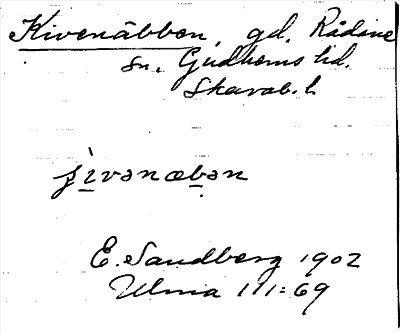 Kivenäbben, gd. Rådene
sn., Gudhems hd.
Skarab. l.
E. Sandberg 1902
Ulma 111:69